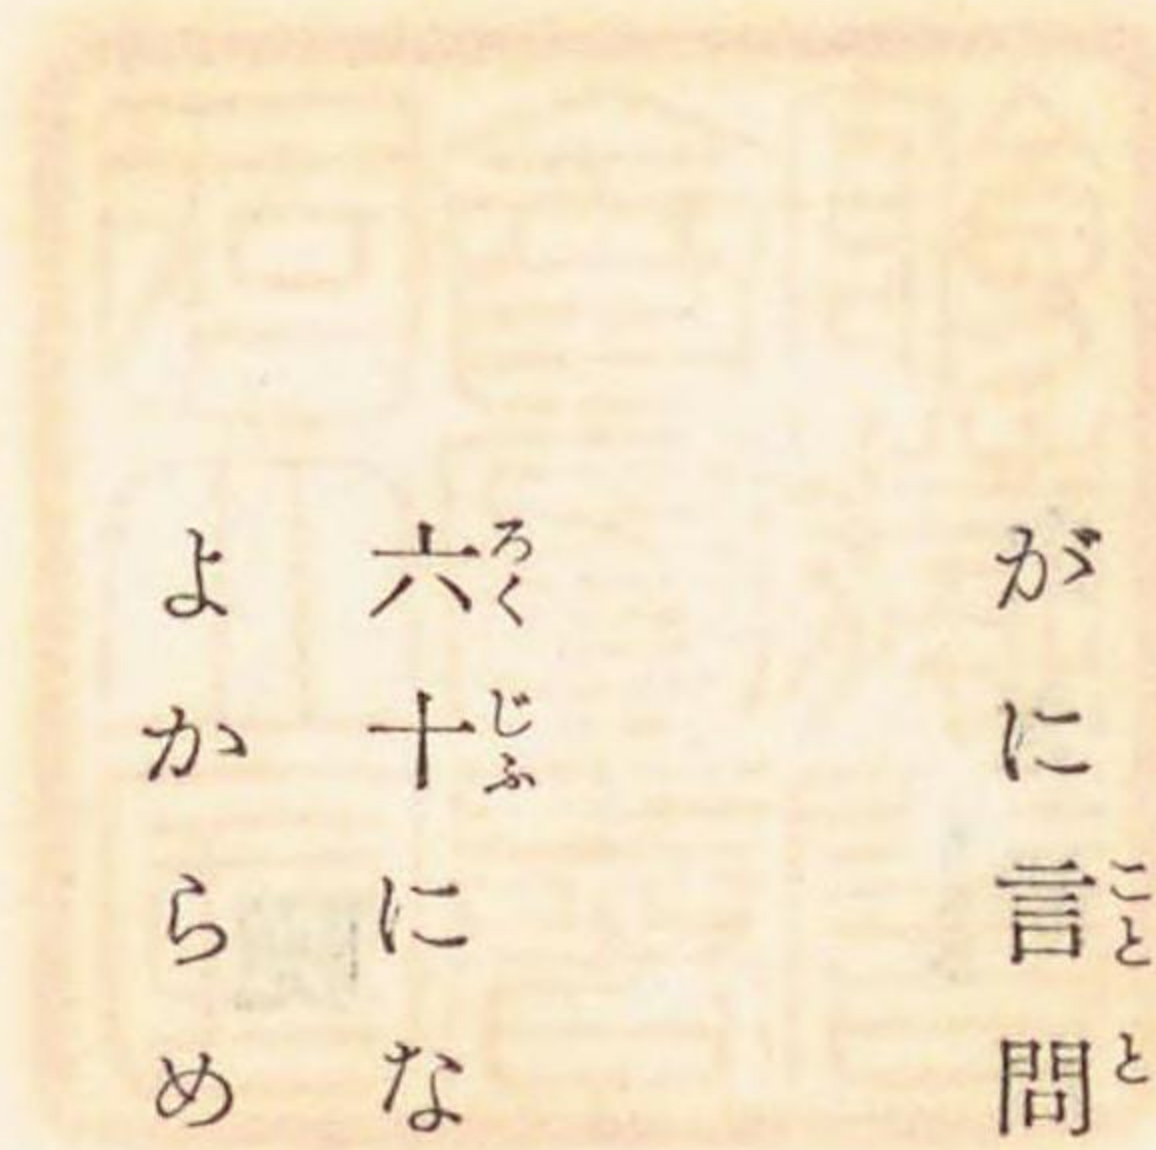 がに言問
六十にな
よからめ